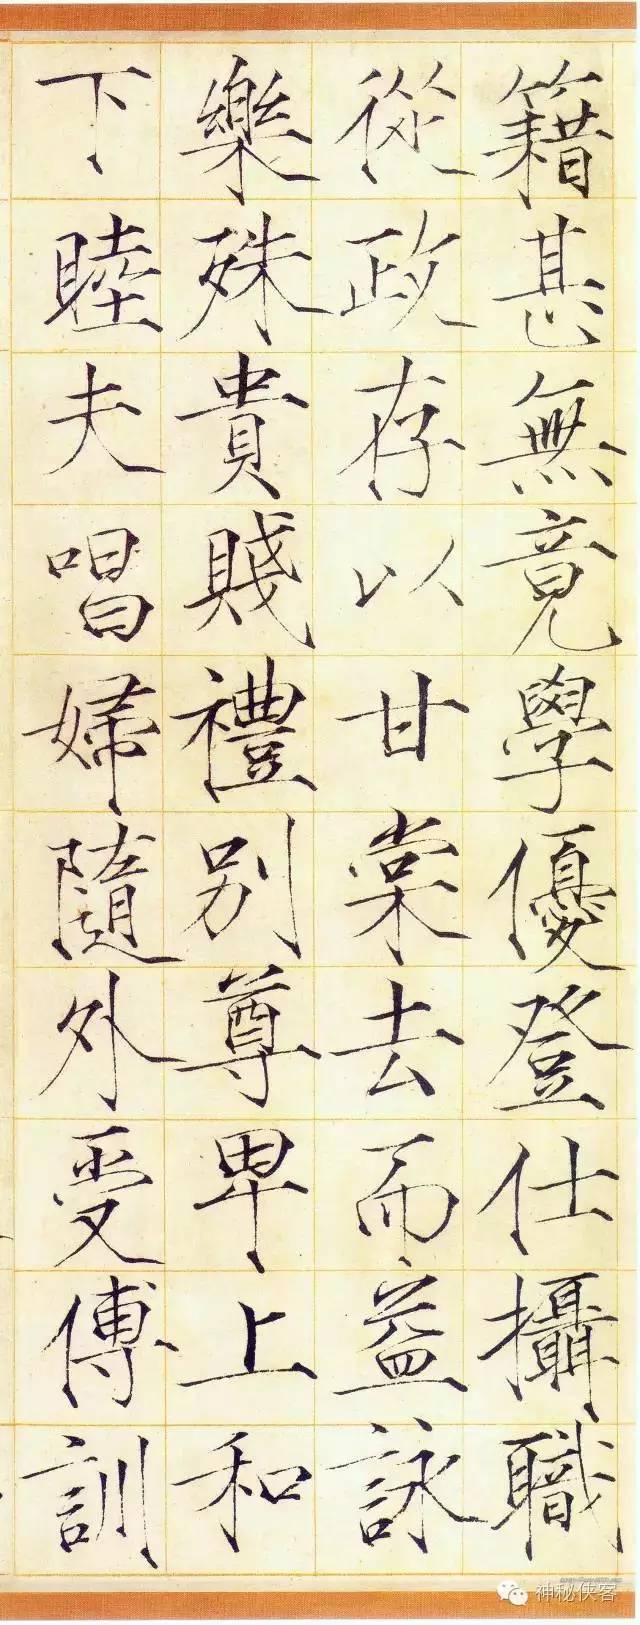 籍甚無竟學優登仕攝職
從政存以甘棠去而益詠
樂殊貴賤禮別尊卑上和
下睦夫唱婦隨外受傅訓
神秘侠客